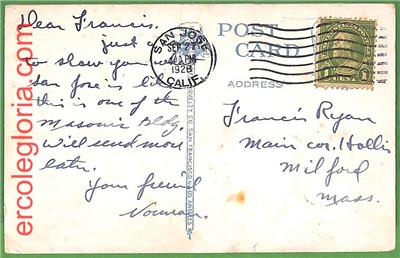 Dear Francis.
just
to show you what
San Jose is like
this is one of the
Masonic Bldg.
Will send more
later.
Your friend
Norman.
SAN JOSE
SEP 27
1928
CALIF.
POST CARD
ADDRESS
1 CENT
Francis Ryan
Main cor. Hollis
Milford
Mass.
ercolegloria.com